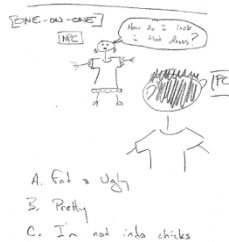 [ONE-ON-ONE]
NPC
How do I look
in this dress?
PC
A. Fat & Ugly
B. Pretty
C. I'm not into chicks